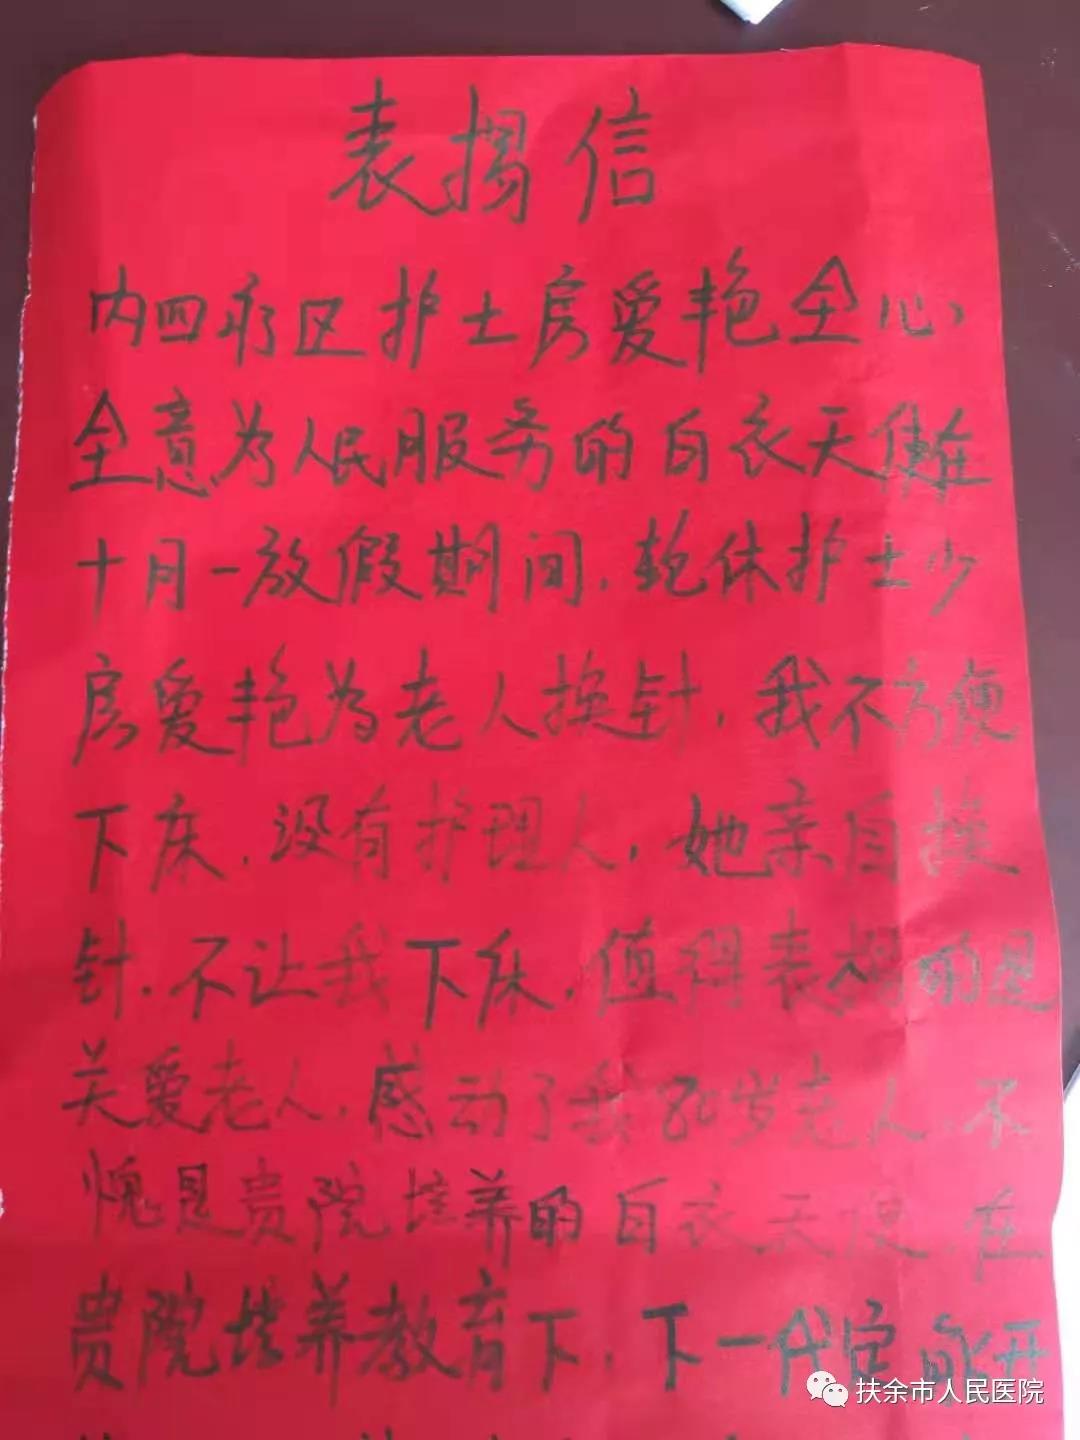 表揚信
内四疗区护士房爱艳全心
全意为人民服务的白衣天使在
十月一放假期间，轮休护士少
房爱艳为老人换针，我不方便
下床，没有护理人，她亲自换
针，不让我下床，值得表揚的是
关爱老人，感动了我80岁老人，不
愧是贵院培养的白衣天使，在
贵院培养教育下，下一代定能开
扶余市人民医院